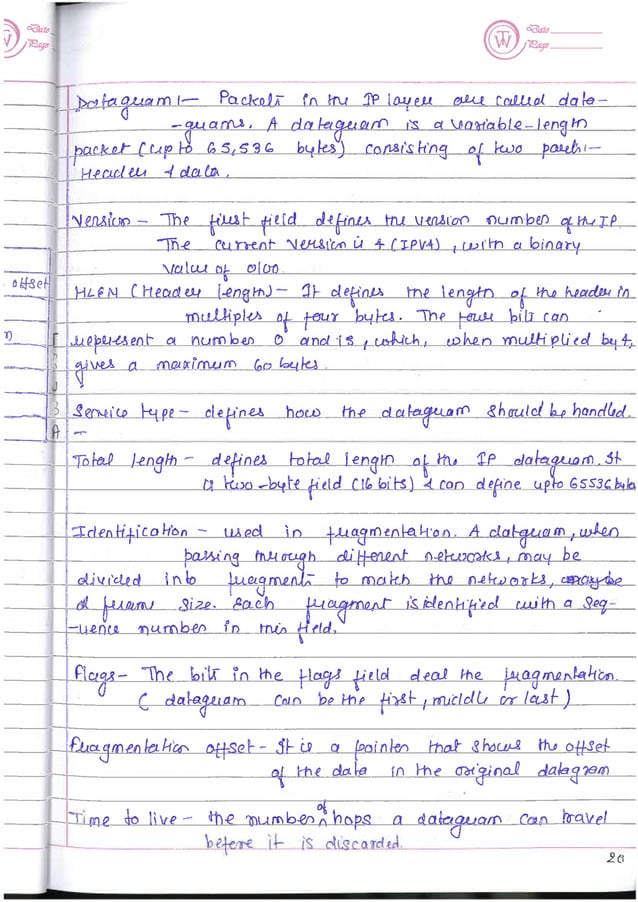 Date
Page
TW
Date
Page
Datagram :- Packets in the IP layer are called data-
-grams. A datagram is a variable-length
packet (up to 65,536 bytes) consisting of two parts:-
Header & data.
Version - The first field defines the version number of the IP
The current version is 4 (IPV4), with a binary
value of 0100.
offset
HLEN (Header length) - It defines the length of the header in
multiples of four bytes. The four bits can
represent a number 0 and 15, which, when multiplied by 4,
gives a maximum 60 bytes.
Service type - defines how the datagram should be handled.
-
Total length - defines total length of the IP datagram. It
is two-byte field (16 bits) & can define upto 65536 byte
Identification - used in fragmentation. A datgram, when
passing through different networks, may be
divided into fragments to match the networks, may be
frame size. Each fragment is identified with a seq-
-uence number in this field.
Flags - The bits in the flags field deal the fragmentation.
( datagram can be the first, middle or last )
Fragmentation offset - It is a pointer that shows the offset
of the data in the original datagram
Time to live - the number of hops a datagram can travel
before it is discarded.
20